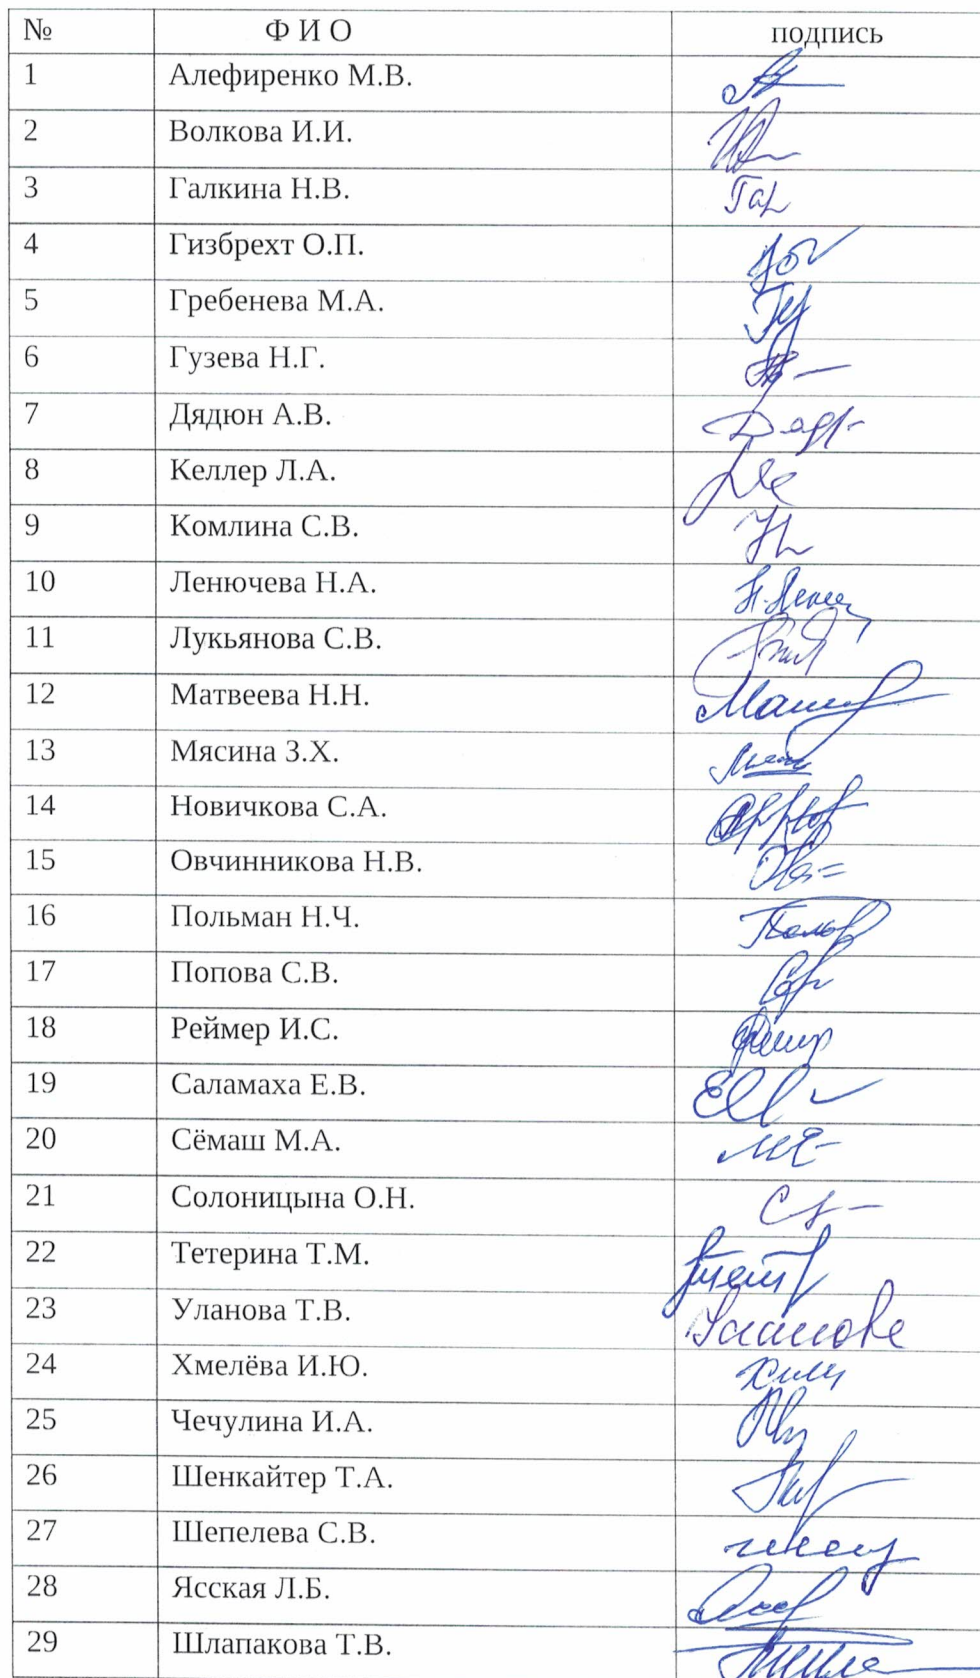 № Ф И О подпись
1 Алефиренко М.В.
2 Волкова И.И.
3 Галкина Н.В.
4 Гизбрехт О.П.
5 Гребенева М.А.
6 Гузева Н.Г.
7 Дядюн А.В.
8 Келлер Л.А.
9 Комлина С.В.
10 Ленючева Н.А.
11 Лукьянова С.В.
12 Матвеева Н.Н.
13 Мясина З.Х.
14 Новичкова С.А.
15 Овчинникова Н.В.
16 Польман Н.Ч.
17 Попова С.В.
18 Реймер И.С.
19 Саламаха Е.В.
20 Сёмаш М.А.
21 Солоницына О.Н.
22 Тетерина Т.М.
23 Уланова Т.В.
24 Хмелёва И.Ю.
25 Чечулина И.А.
26 Шенкайтер Т.А.
27 Шепелева С.В.
28 Ясская Л.Б.
29 Шлапакова Т.В.